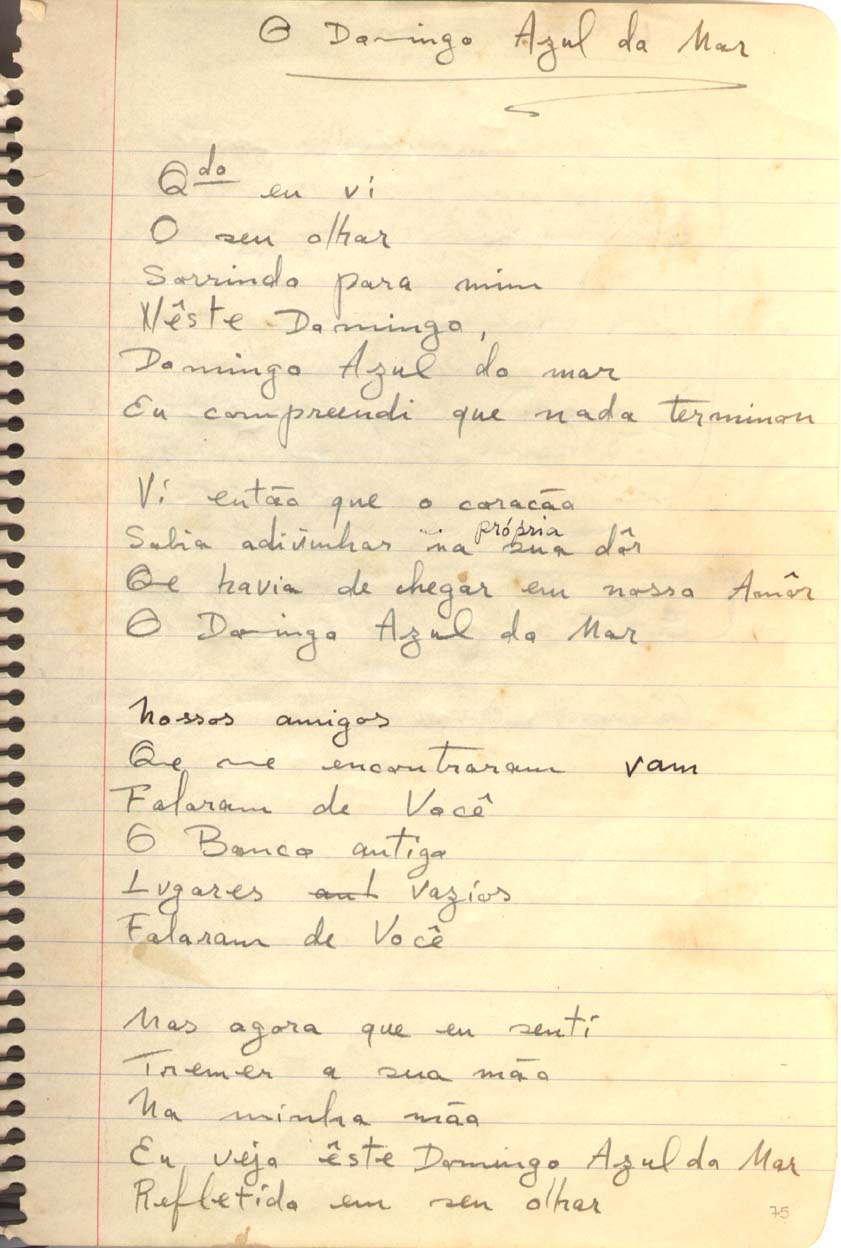 O Domingo Azul do Mar
Qdo eu vi
O seu olhar
Sorrindo para mim
Nêste Domingo,
Domingo Azul do mar
Eu compreendi que nada terminou
Vi então que o coração
Sabia adivinhar na própria sua dôr
Qe havia de chegar em nosso Amôr
O Domingo Azul do Mar
Nossos amigos
Qe me encontraram vam
Falaram de Você
O Banco antigo
Lugares ant vazios
Falaram de Você
Mas agora que eu senti
Tremer a sua mão
Na minha mão
Eu vejo êste Domingo Azul do Mar
Refletido em seu olhar
75